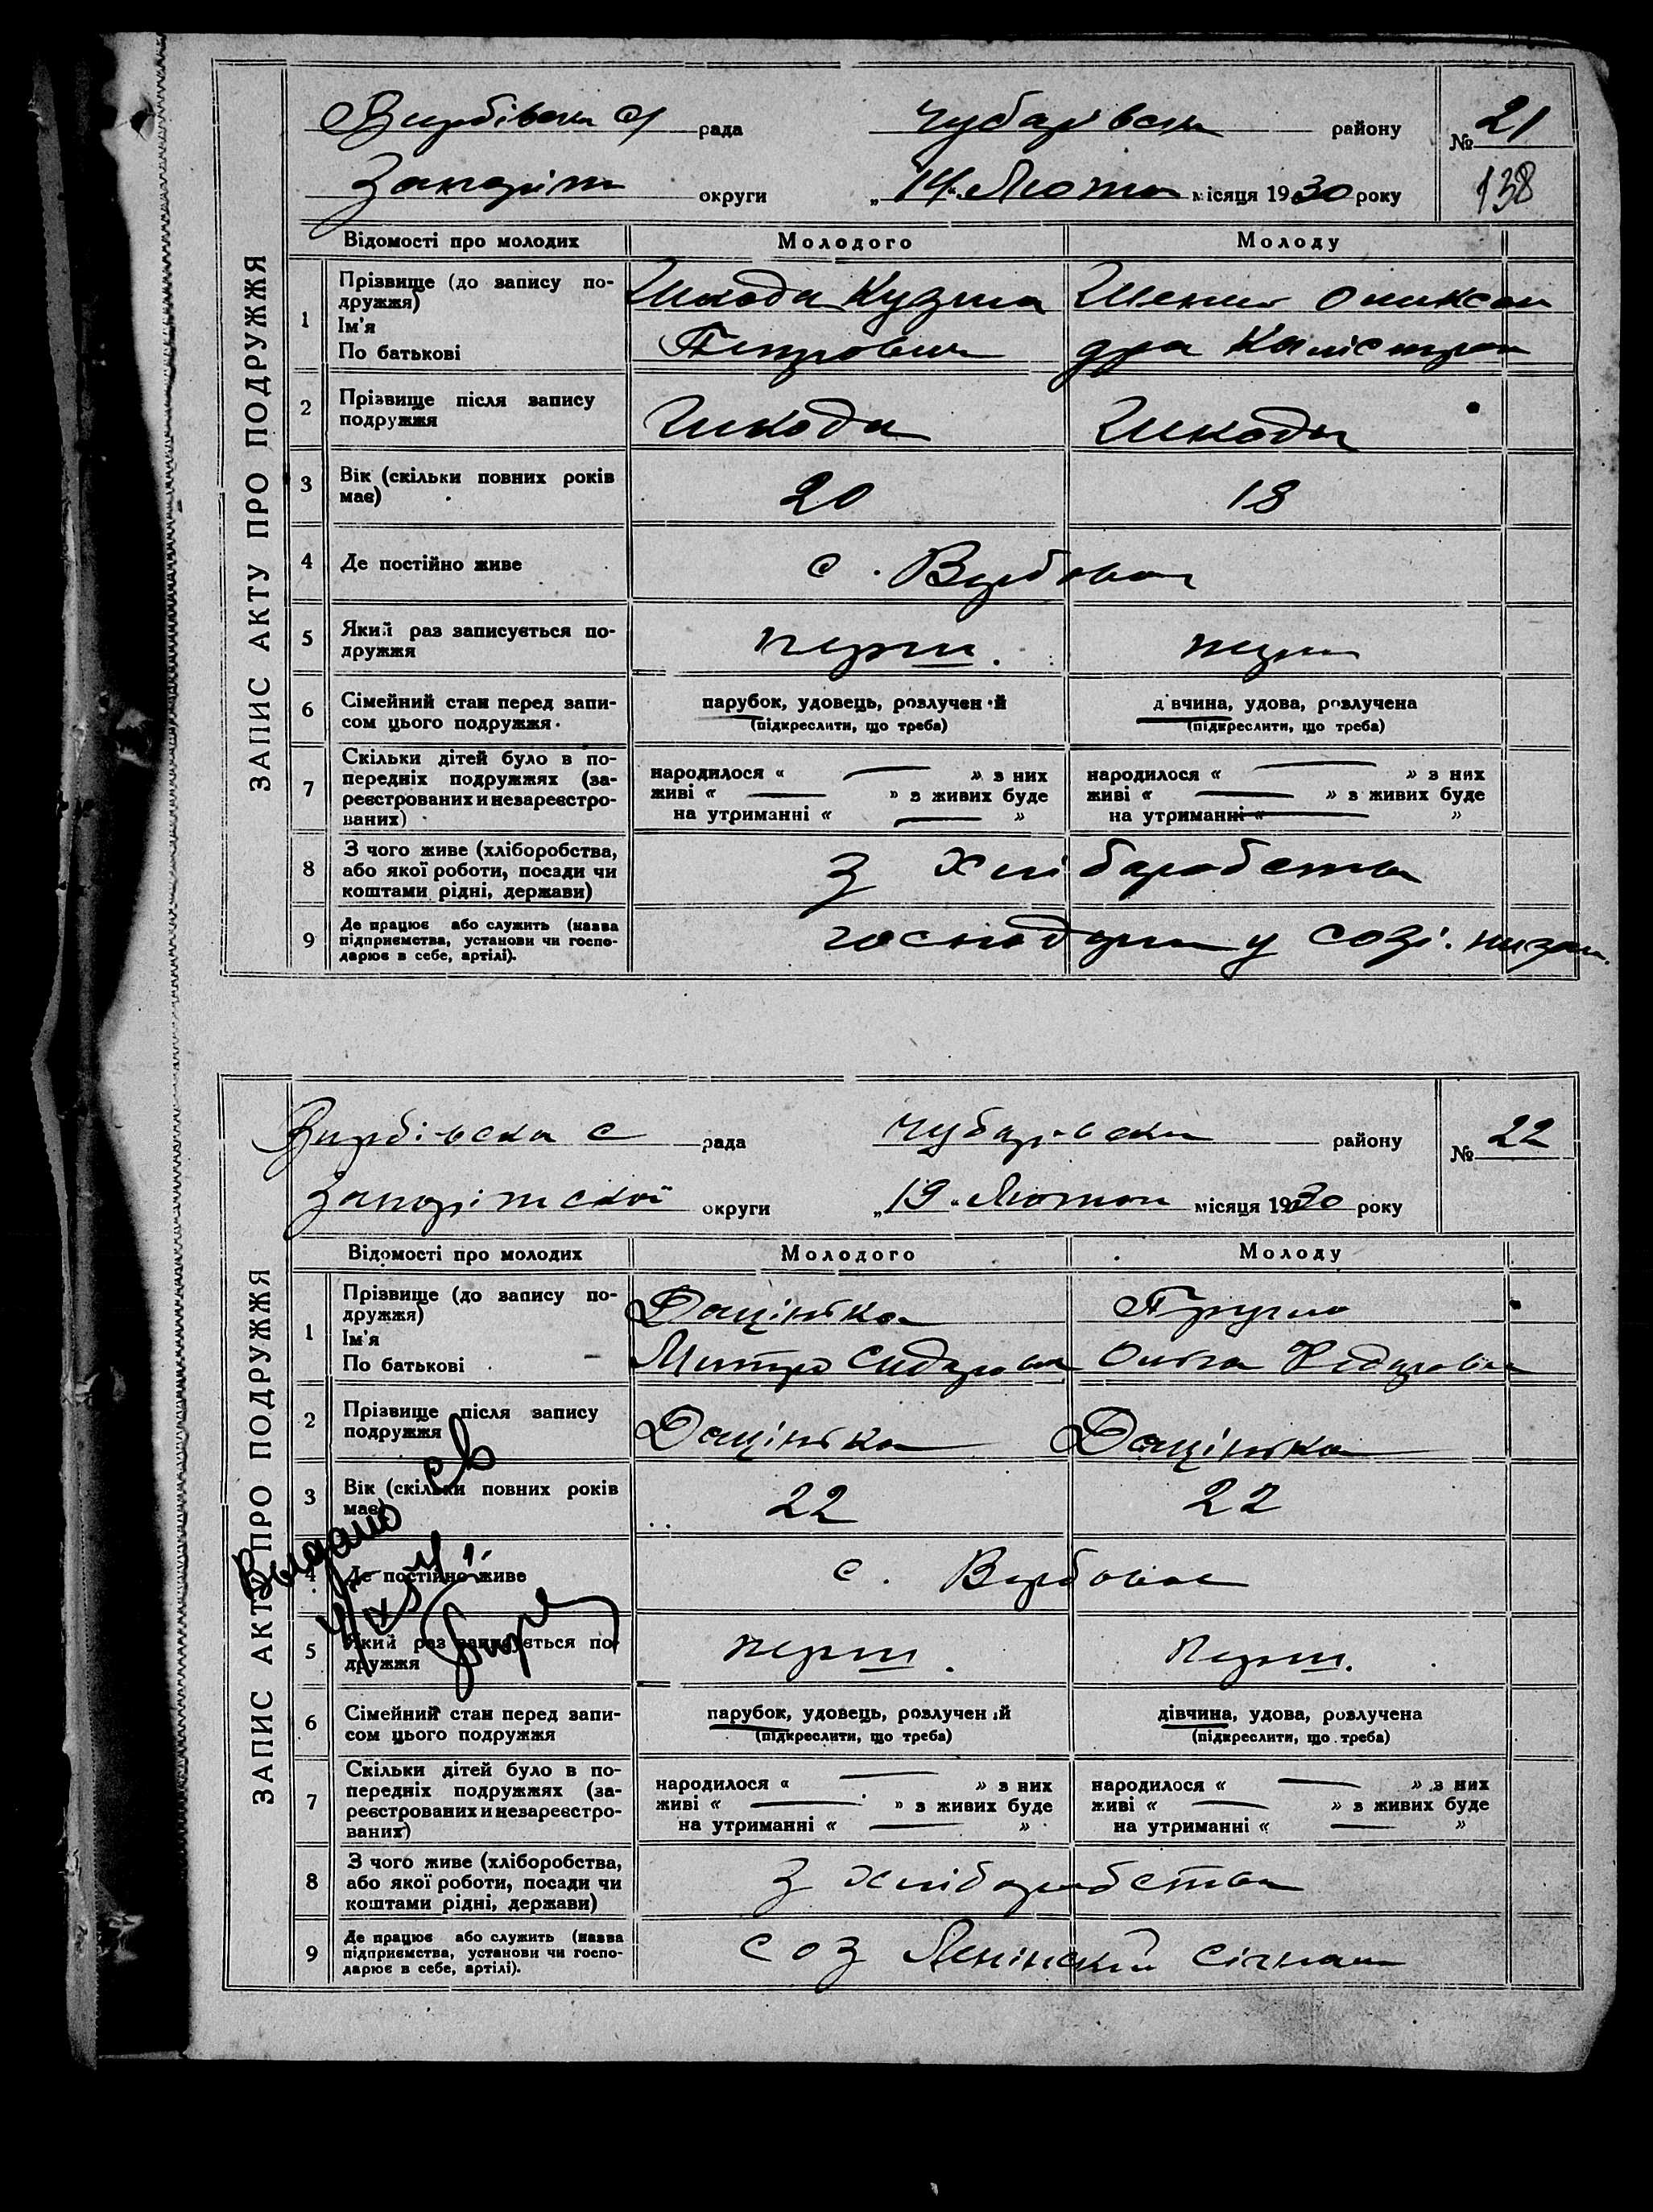 ЗАПИС АКТУ ПРО ПОДРУЖЖЯ
рада Чубарівськ району № 21
Запоріж округи „14“ Люто місяця 1930 року 138
Відомості про молодих Молодого Молоду
1 Прізвище (до запису по-
дружжя)
Ім'я
По батькові
Шкода Кузьма
Петрович
Олексан
дра Калістрат
2 Прізвище після запису
подружжя
Шкода Шкода
3 Вік (скільки повних років
має)
20 18
4 Де постійно живе с. Вербова
5 Який раз записується по-
дружжя
перш. перш
6 Сімейний стан перед запи-
сом цього подружжя
парубок, удовець, розлучений
(підкреслити, що треба)
дівчина, удова, розлучена
(підкреслити, що треба)
7 Скільки дітей було в по-
передніх подружжях (за-
реєстрованих и незареєстро-
ваних)
народилося « — » з них
живі « — » з живих буде
на утриманні « — »
народилося « — » з них
живі « — » з живих буде
на утриманні « — »
8 З чого живе (хліборобства,
або якої роботи, посади чи
коштами рідні, держави)
З хліборобства
9 Де працює або служить (назва
підприємства, установи чи госпо-
дарює в себе, артілі).
у созі.
ЗАПИС АКТУ ПРО ПОДРУЖЖЯ
Вербівська с рада Чубарівська району № 22
Запоріжської округи „19“ Лютого місяця 1930 року
Відомості про молодих Молодого Молоду
1 Прізвище (до запису по-
дружжя)
Ім'я
По батькові
Доцінька
Митро Сидоров
Ольга
2 Прізвище після запису
подружжя
Доцінька Доцінька
3 Вік (скільки повних років
має)
22 22
4 Де постійно живе с. Вербова
5 Який раз записується по-
дружжя
перш. Перш.
6 Сімейний стан перед запи-
сом цього подружжя
парубок, удовець, розлучений
(підкреслити, що треба)
дівчина, удова, розлучена
(підкреслити, що треба)
7 Скільки дітей було в по-
передніх подружжях (за-
реєстрованих и незареєстро-
ваних)
народилося « — » з них
живі « — » з живих буде
на утриманні « — »
народилося « — » з них
живі « — » з живих буде
на утриманні « — »
8 З чого живе (хліборобства,
або якої роботи, посади чи
коштами рідні, держави)
З хліборобства
9 Де працює або служить (назва
підприємства, установи чи госпо-
дарює в себе, артілі).
соз Ленінский
Выдано св